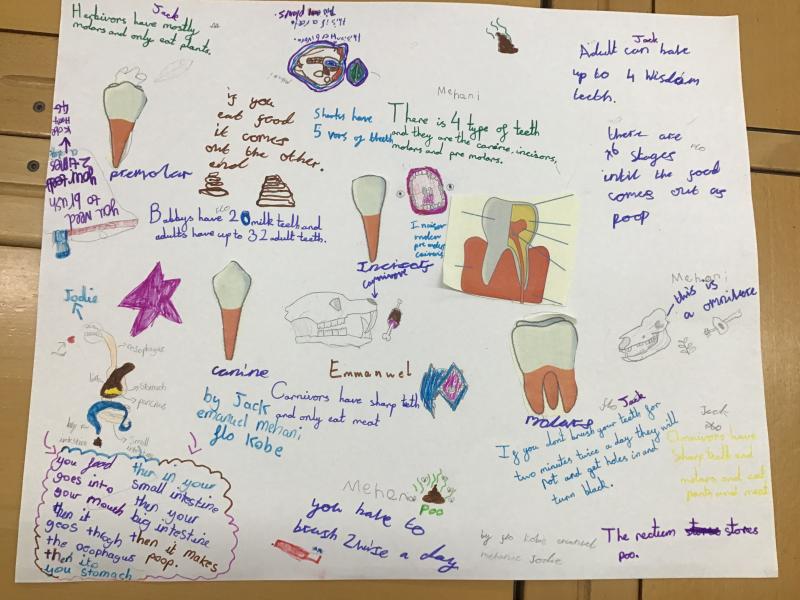 Jack
Herbivors have mostly
molars and only eat plants.
This is a
Jack
Adult can have
up to 4 wisdom
teeth.
Mehani
if you
eat food
it comes
out the other.
end
Sharks have
5 rors of theeth
There is 4 type of teeth
and they are the canine, incisors,
molars and pre molars.
there are
stages
until the food
comes out as
poop
premolar
you need
to brush
your teeth
2 times
a day
flo
Babbys have 20 milk teeth and
adults have up to 32 adult teeth.
carnivore
Mehani
this is
a omnivore
Jodie
oesophagus
stomach
pancrias
Small
canine
Emmanuel
Carnivors have sharp teeth
and only eat meat
by Jack
emanuel mehani
flo kobe
molars
flo Jack
If you dont brush your teeth for
two minutes twice a day they will
rot and get holes in and
turn black.
Jack
Omnivors have
Sharp teeth and
molars and eat
pants and meat
you food
goes into
your mouth
then it
goes throgh
the oesophagus
then ito
you stomach
then in your
small intestine
then your
big intestine
then it makes
poop.
Mehani
Poo
you have to
brush 2wice a day
by flo kobie emanuel
mehanie Jodie
The rectum stores
poo.